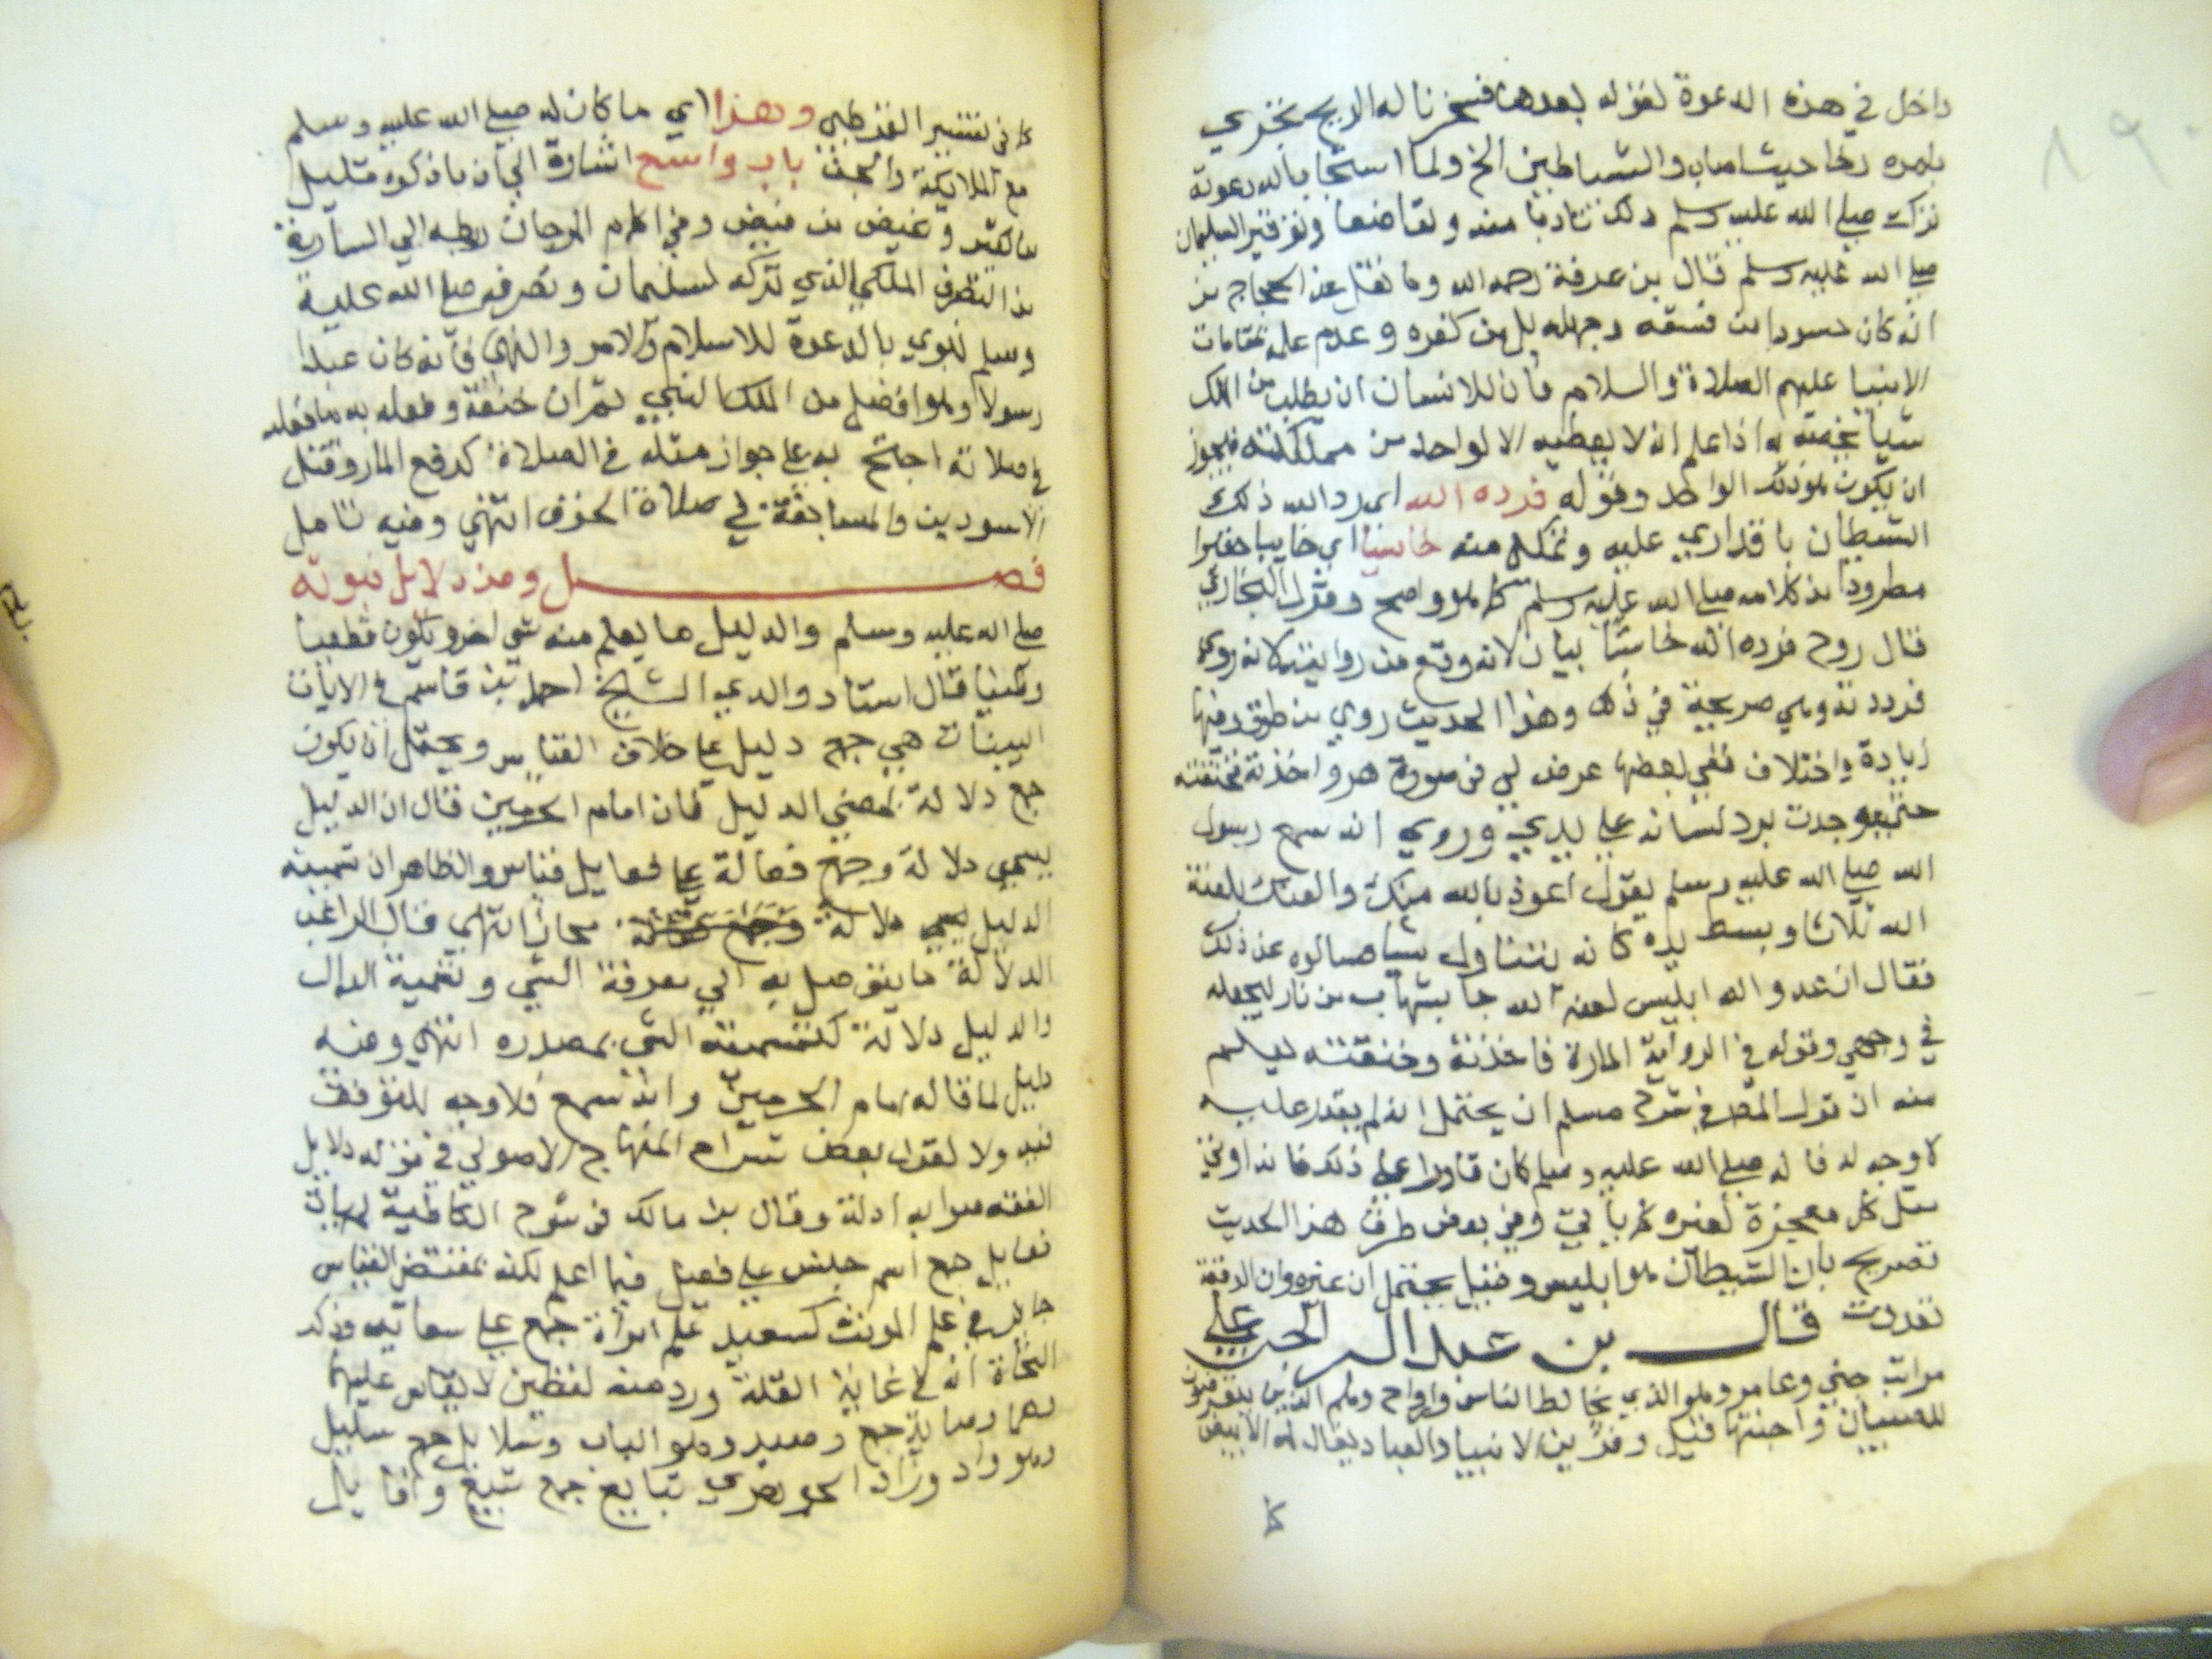 داخل في هذه الدعوة لقوله بعدها فسخرنا له الريح تجري
بامره رخا حيث اصاب والشياطين الخ ولما استجاب الله دعوته
تركه صلى الله عليه وسلم ذلك تادبا معه وتواضعا وتوقير السليمان
صلى الله عليه وسلم قال بن عرفة رحمه الله وما نقل عن الحجاج من
انه كان حسودا من فسقه وجهله بل من كفره وعدم علمه بمقامات
الانبيا عليهم الصلاة والسلام فان للانسان ان يطلب من الملك
شيا يختص به اذا علم انه لا يعطيه الا لواحد من مملكته فيجوز
ان يكون هو ذلك الواحد وقوله فرده الله اي رد الله ذلك
الشيطان باقداري عليه وتمكني منه خاسئا اي خايبا حقيرا
مطرودا من كلامه صلى الله عليه وسلم كما هو واضح وقول البخاري
قال روح فرده الله خاسئا بيان لانه وقع من روايته لانه روي
فرددته وهي صريحة في ذلك وهذا الحديث روي من طرق وفيها
زيادة واختلاف ففي بعضها عرض لي في صورة هر واخذته فخنقته
حتى وجدت برد لسانه على يدي وروي انه سمع رسول
الله صلى الله عليه وسلم يقول اعوذ بالله منك والعنك بلعنة
الله ثلاثا وبسط يده كانه يتناول شيا فسالوه عن ذلك
فقال ان عدو الله ابليس لعنه الله جا بشهاب من نار ليجعله
في وجهي وقوله في الرواية المارة فاخذته وخنقته يعلم
منه ان قول المص في شرح مسلم ان يحتمل انه لم يقدر عليه
لا وجه له فانه صلى الله عليه وسلم كان قادرا على ذلك فانه اوتي
مثل كل معجزة لغيره كما ياتي وفي بعض طرق هذا الحديث
تصريح بان الشيطان هو ابليس وقيل يحتمل ان غيره وان الواقعة
تعددت قال بن عبد البر الجن على
مراتب جني وعامر وهو الذي يخالط الناس وارواح وهم الذين يتعرضون
للصبيان
كما في تفسير القرطبي وهذا اي ما كان له صلى الله عليه وسلم
مع الملايكة والجن باب واسع اشارة الى ان ما ذكره قليل
من كثير وغيض من فيض وفي اكام المرجان
من التصرف الملكي الذي تركه لسليمان وتصرفه صلى الله عليه
وسلم نبوي بالدعوة للاسلام والامر والنهي فانه كان عبدا
رسولا وهو افضل من الملك النبي ثم ان خنقه وفعله به ما فعله
في صلاته احتج به على جواز مثله في الصلاة كدفع المار وقتل
الاسودين والمسايفة في صلاة الخوف انتهى وفيه تامل
فصل ومن دلايل نبوته
صلى الله عليه وسلم والدليل ما يعلم منه شي اخر ويكون قطعيا
وظنيا قال استاذ والدي الشيخ احمد بن قاسم في الايات
البينات هي جمع دليل على خلاف القياس ويحتمل ان يكون
جمع دلالة بمعنى الدليل فان امام الحرمين قال ان الدليل
يسمى دلالة وجمع فعالة على فعايل قياس والظاهر ان تسمية
الدليل دلالة مجاز انتهى قال الراغب
الدلالة ما يتوصل به الى معرفة الشي وتسمية الدال
والدليل دلالة كتسمية الشي بمصدره انتهى وفيه
دليل لما قاله امام الحرمين وان لم يسمع فلا وجه للتوقف
فيه ولا لقول بعض شراح المنهاج الاصولي في قوله دلايل
الفقه صوابه ادلة وقال بن مالك في شرح الكافية لم يات
فعايل جمع اسم جنس على فعيل فيما اعلم لكنه بمقتضى القياس
جايز في علم المونث كسعيد علم امراة جمع على سعايد وذكر
النحاة انه في غاية القلة ورد منه لفظين لا يقاس عليهما
وهما وصايد جمع وصيد وهو الباب وسلايل جمع سليل
وهو واد وزاد الجوهري تبايع جمع تبيع وافايل